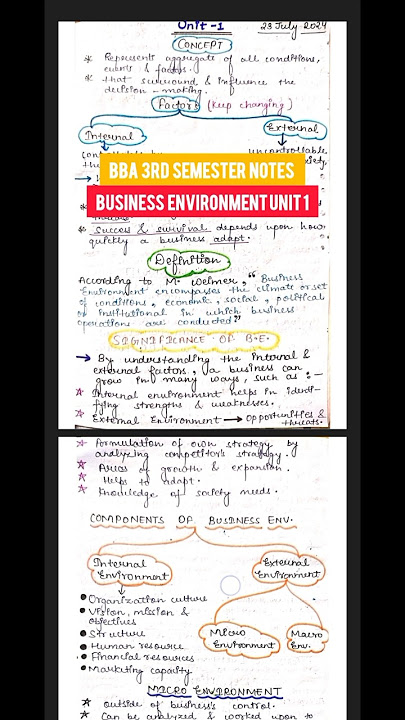 Unit-1
23 July 2024
CONCEPT
* Represents aggregate of all conditions,
events & factors.
* that surround & influence the
decision-making.
Factors (keep changing)
Internal
External
uncontrollable
BBA 3RD SEMESTER NOTES
BUSINESS ENVIRONMENT UNIT 1
* Success & survival depends upon how
quickly a business adapt.
Definition
According to M. Weimer, "Business
Environment encompasses the climate or set
of conditions, economic, social, political
or institutional in which business
operations are conducted"
SIGNIFICANCE OF B.E.
→ By understanding the internal &
external factors, a business can
grow in many ways, such as :-
* Internal environment helps in identi-
fying strengths & weaknesses.
* External Environment → opportunities &
threats.
* Formulation of own strategy by
analyzing competitor's strategy.
* Areas of growth & expansion.
* Helps to adapt.
* Knowledge of society needs.
COMPONENTS OF BUSINESS ENV.
Internal
Environment
External
Environment
• Organization culture
• Vision, mission &
objectives
• Structure
• Human resource
• Financial resources
• Marketing capacity
Micro
Environment
Macro
Env.
MICRO ENVIRONMENT
* outside of business's control.
* Can be analyzed & worked upon to